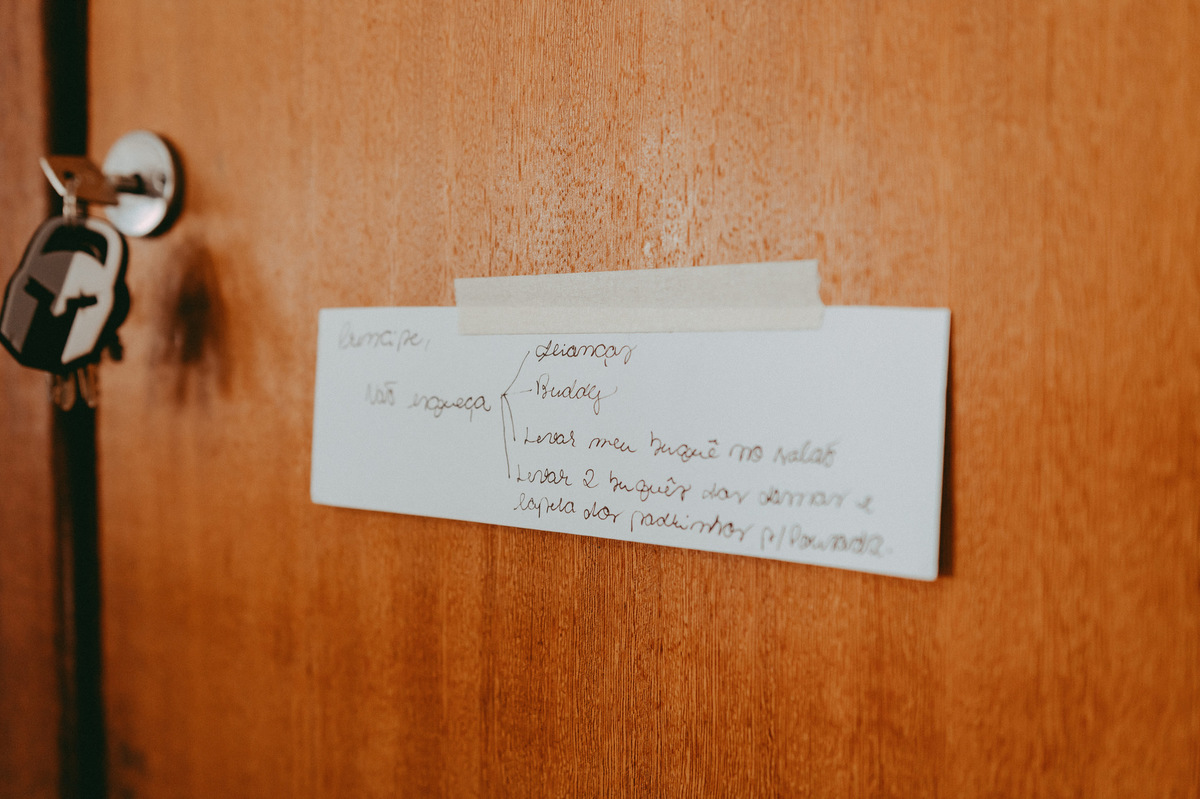 Príncipe,
Não esqueça
Alianças
- Buddy
Levar meu buquê no salão
Levar 2 buquês das damas e
lapela dos padrinhos p/ Pousada.